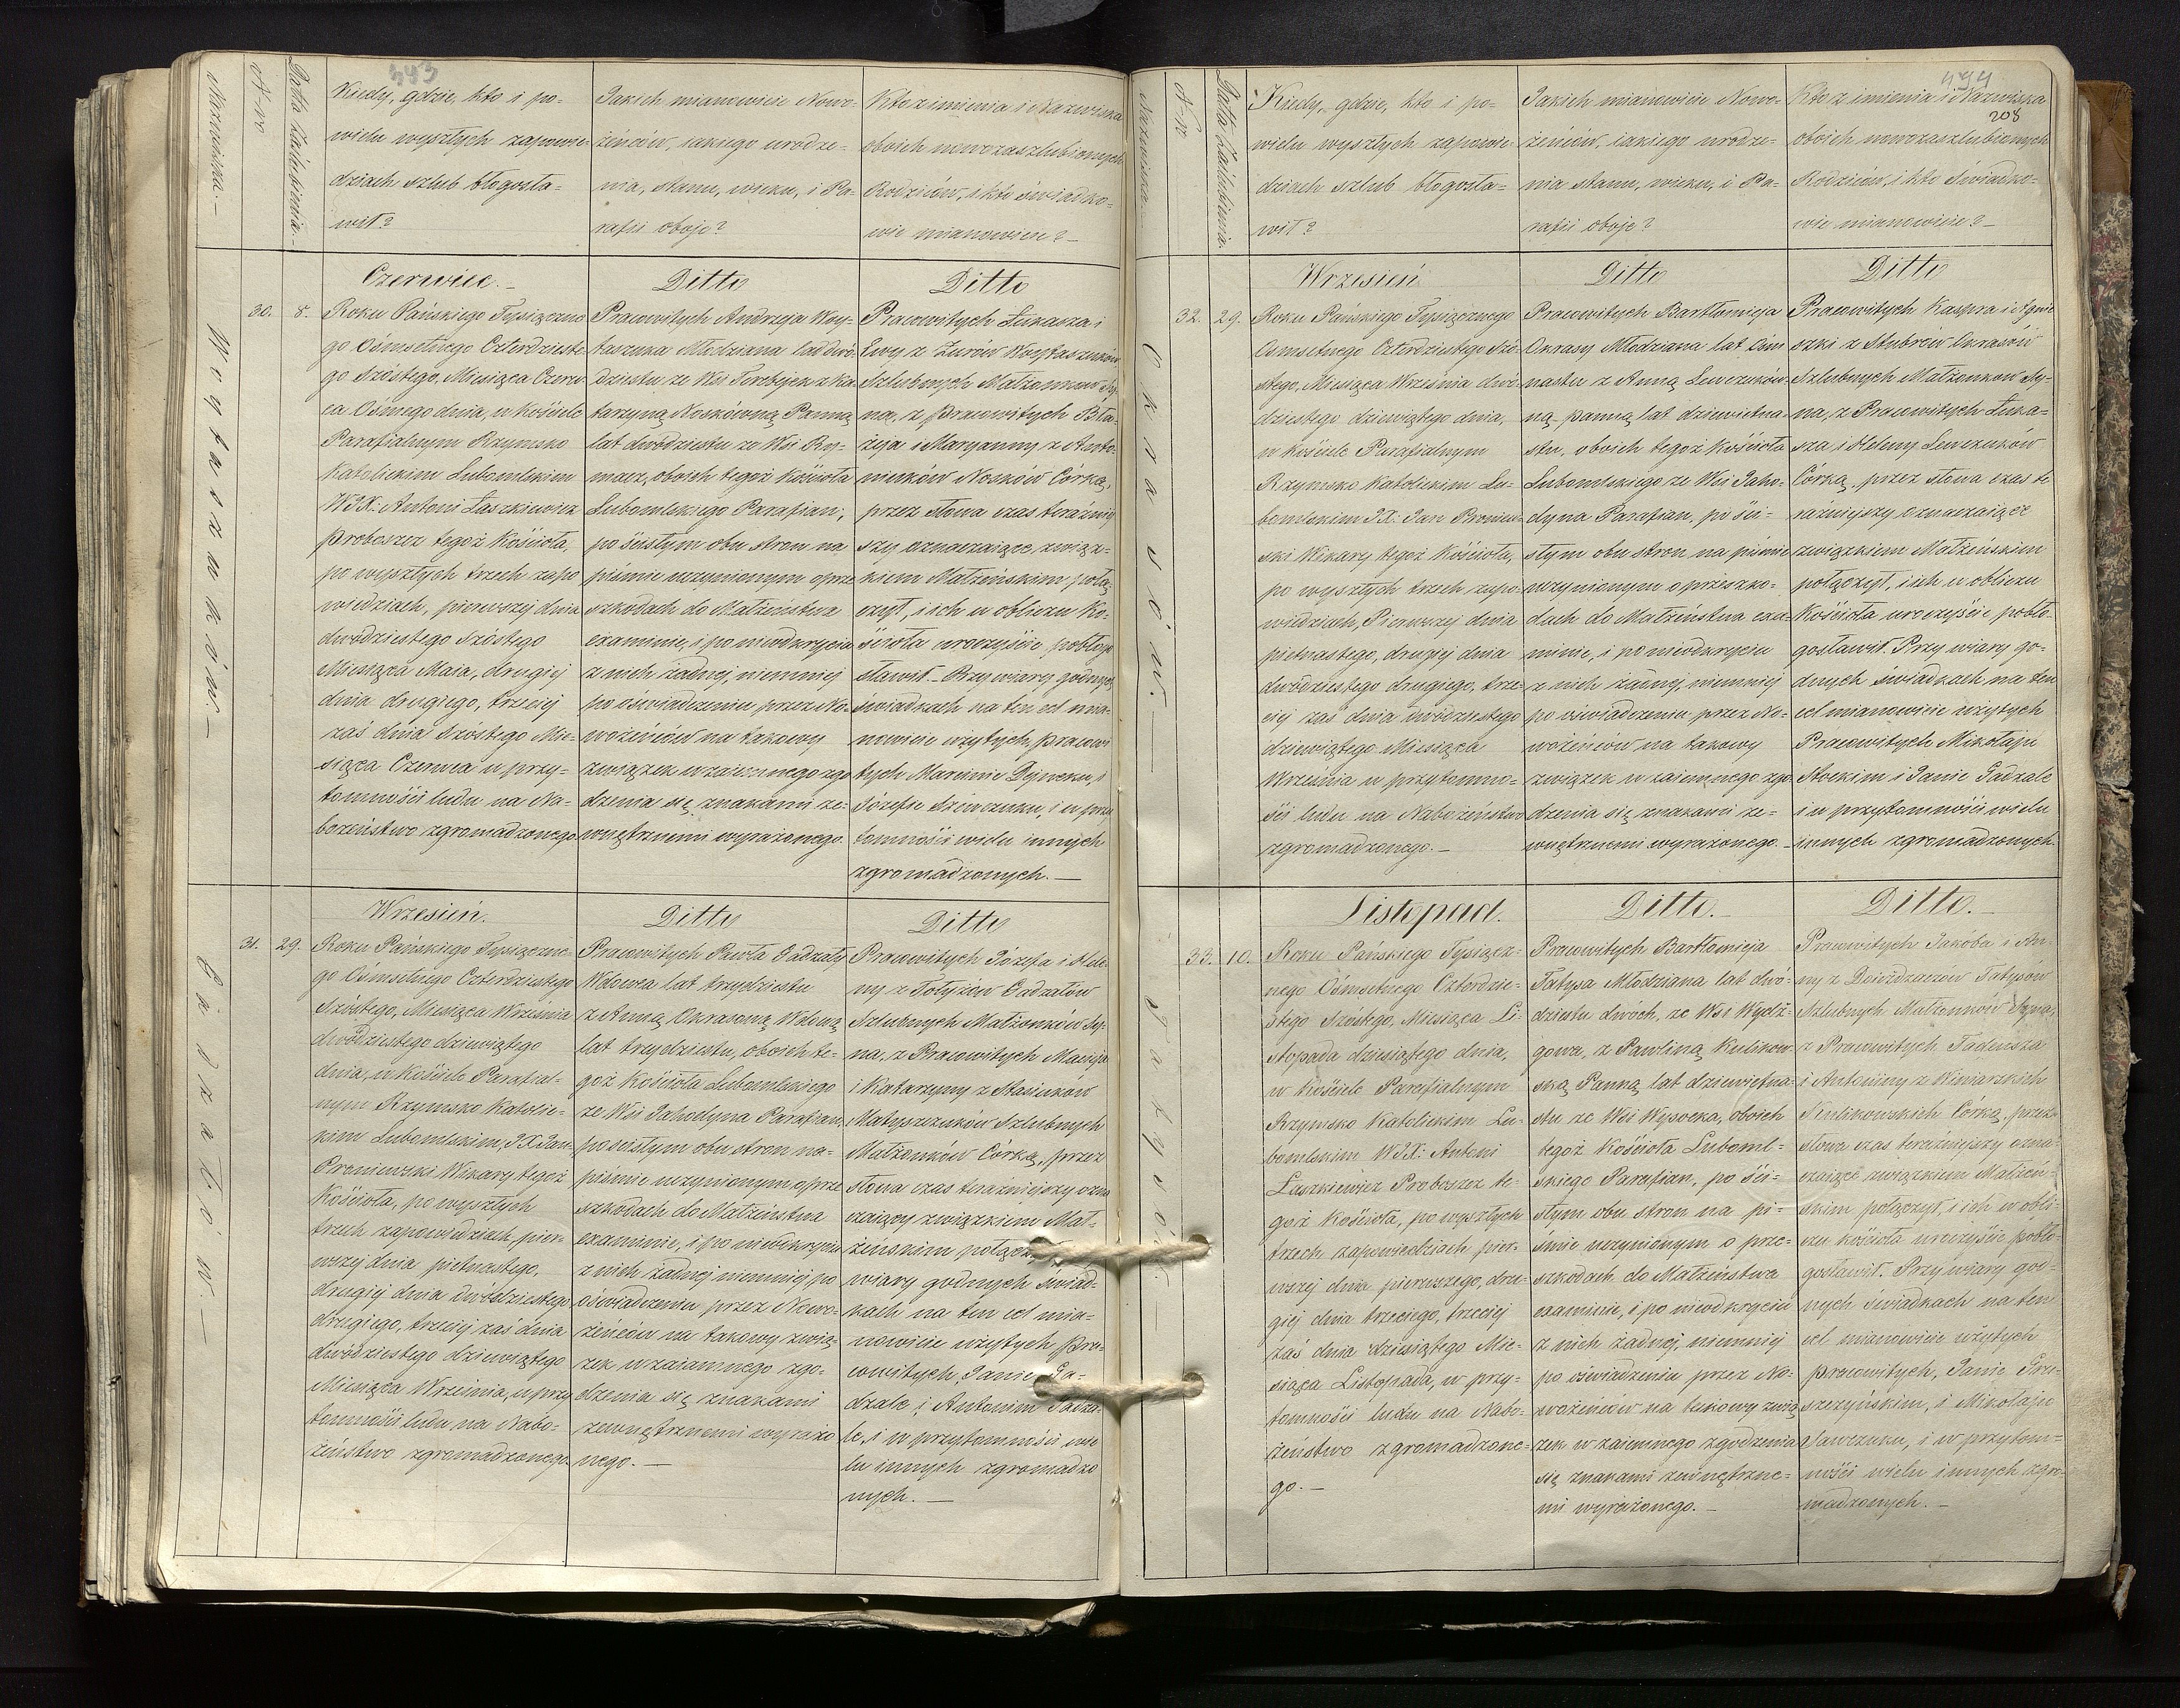 343
Nazwiska.—
N-ro
Data Zaślubienia.—
Kiedy, gdzie, kto i po-
wielu wyszłych zapowie-
dziach szlub błogosła-
wił?
Jakich mianowicie Nowo-
żeńców, jakiego urodze-
nia, stanu, wieku, i Pa-
rafii oboje?
Kto z imienia i Nazwiska
oboich nowozaszlubionych
Rodziców, i kto świadko-
wie mianowicie?—
Woytaszuków.—
30.
8.
Czerwiec.—
Roku Pańskiego Tysiączne
go Ośmsetnego Czterdzieste
go Szóstego, Miesiąca Czerw
ca Ośmego dnia, w Kościele
Parafialnym Rzymsko
Katolickim Lubomlskim
WJX: Antoni Łaszkiewicz
Proboszcz tegoż Kościoła,
po wyszłych trzech zapo
wiedziach, pierwszej dnia
dwódziestego Szóstego
Miesiąca Maia, drugiej
dnia drugiego, trzeciej
zaś dnia Szóstego Mie-
siąca Czerwca w przy-
tomności ludu na Na-
bożeństwo zgromadzonego
Ditto
Pracowitych Andrzeja Woy-
taszuka Młodziana lat dwó-
dziestu ze Wsi z Ka
tarzyną Noskówną Panną
lat dwódziestu ze Wsi Ry-
macz, oboich tegoż Kościoła
Lubomlskiego Parafian,
po ścisłym obu stron na
piśmie uczynionym o prze
szkodach do Małżeństwa
examinie, i po nieodkryciu
z nich żadnej, niemniej
po oświadczeniu przez No-
wożeńców na takowy
związek wzaiemnego zgo
dzenia się, znakami ze-
wnętrznemi wyrażonego.
Ditto
Pracowitych Łukasza i
Ewy z Żurów Woytaszuków
Szlubnych Małżonków Sy-
na, z Pracowitych Bła-
żeja i Maryanny z Anto-
niuków Nosków Córką,
przez słowa czas teraźniey
szy oznaczaiące, związ-
kiem Małżeńskim połą-
czył, i ich w obliczu Ko-
ścioła uroczyście pobłogo
sławił.— Przy wiary godnych
świadkach na ten cel mia-
nowicie użytych, pracowi
tych Marcinie Deyneku, i
Józefie Szewczuku, i w przy
tomności wielu innych
zgromadzonych.—
Gadzałów.—
31.
29.
Wrzesień.
Roku Pańskiego Tysiączne-
go Ośmsetnego Czterdziestego
Szóstego, Miesiąca Września
dwódziestego dziewiątego
dnia, w Kościele Parafial-
nym Rzymsko Katolic-
kim Lubomlskim, JX Jan
Broniewski Wikary tegoż
Kościoła, po wyszłych
trzech zapowiedziach, pier-
wszej dnia pietnastego,
drugiej dnia dwódziestego
drugiego, trzeciej zaś dnia
dwódziestego dziewiątego
Miesiąca Września, w przy
tomności ludu na Nabo-
żeństwo zgromadzonego.
Ditto
Pracowitych Pawła Gadzały
Wdowca lat trzydziestu
z Anną Okrasową Wdową
lat trzydziestu, oboich te-
goż Kościoła Lubomlskiego
ze Wsi Jahodyna Parafian,
po ścisłym obu stron na-
piśmie uczynionym o prze
szkodach do Małżeństwa
examinie, i po nieodkryciu
z nich żadnej niemniej po
oświadczeniu przez Nowo-
żeńców na takowy zwią-
zek wzaiemnego zgo-
dzenia się znakami
zewnętrznemi wyrażo
nego.—
Ditto
Pracowitych Józefa i Hele-
ny z Gadzałów
Szlubnych Małżonków Sy-
na, z Pracowitych Macieja
i Katarzyny z Stasiuków
Matyszczuków Szlubnych
Małżonków Córką, przez
słowa czas teraźniejszy ozna
czaiący związkiem Mał-
żeńskim
wiary godnych świad-
kach na ten cel mia-
nowicie użytych pra-
cowitych, Janie Ga-
dzale i Antonim Gadza-
le, i w przytomności wie
lu innych zgromadzo
nych.—
494
208
Nazwiska.
N-ro
Data Zaślubienia.
Kiedy, gdzie, kto i po-
wielu wyszłych zapowie-
dziach szlub błogosła-
wił?
Jakich mianowicie Nowo-
żeńców, iakiego urodze-
nia stanu, wieku, i Pa-
rafii oboje?
Kto z imienia i Nazwiska
oboich nowozaszlubionych
Rodziców, i kto Świadko-
wie mianowicie?—
Okrasów.—
32.
29.
Wrzesień
Roku Pańskiego Tysiącznego
Osmsetnego Czterdziestego Szó-
stego, Miesiąca Września dwó-
dziestego dziewiątego dnia,
w Kościele Parafialnym
Rzymsko Katolickim Lu-
bomlskim JX: Jan Broniew-
ski Wikary tegoż Kościoła,
po wyszłych trzech zapo-
wiedziach, Pierwszej dnia
pietnastego, drugiej dnia
dwódziestego drugiego, trze-
ciej zaś dnia dwódziestego
dziewiątego Miesiąca
Września w przytomno-
ści ludu na Nabożeństwo
zgromadzonego.—
Ditto
Pracowitych Bartłomieja
Okrasy Młodziana lat Ośm
nastu z Anną Lewczuków-
ną panną lat dziewietna-
stu, oboich tegoż Kościoła
Lubomlskiego ze Wsi Jaho-
dyna Parafian, po ści-
słym obu stron na piśmie
uczynionym o przeszko-
dach do Małżeństwa exa-
minie, i po nieodkryciu
z nich żadnej, niemniej
po oświadczeniu przez No-
wożeńców na takowy
związek w zaiemnego zgo-
dzenia się znakami ze-
wnętrznemi wyrażonego.—
Ditto
Pracowitych Kaspra i Agnie
szki z Okrasów
Szlubnych Małżonków Sy-
na, z Pracowitych Łuka-
sza i Heleny Lewczuków
Córką, przez słowa czas te
raźniejszy oznaczaiące
związkiem Małżeńskim
połączył, i ich w obliczu
Kościoła uroczyście pobło-
gosławił. Przy wiary go-
dnych świadkach na ten
cel mianowicie użytych
Pracowitych Mikołaju
i Janie Gadzale
i w przytomności wielu
innych zgromadzonych.
Tatysów.
33.
10.
Listopad.
Roku Pańskiego Tysiącz-
nego Ośmsetnego Czterdzie-
stego Szóstego, Miesiąca Li-
stopada dziesiątego dnia,
w Kościele Parafialnym
Rzymsko Katolickim Lu-
bomlskim WJX: Antoni
Łaszkiewicz Proboszcz te-
goż Kościoła, po wyszłych
trzech zapowiedziach pier-
wszej dnia pierwszego, dru-
giej dnia trzeciego, trzeciej
zaś dnia dziesiątego Mie-
siąca Listopada, w przy-
tomności ludu na Nabo-
żeństwo zgromadzone-
go.—
Ditto.—
Pracowitych Bartłomieja
Tatysa Młodziana lat dwó-
dziestu dwóch, ze Wsi
z Pawliną Kulikow-
ską Panną lat dziewietna-
stu ze Wsi Wysocka, oboich
tegoż Kościoła Luboml-
skiego Parafian, po ści-
słym obu stron na pi-
śmie uczynionym o prze-
szkodach do Małżeństwa
examinie, i po nieodkryciu
z nich żadnej, niemniej
po oświadczeniu przez No-
wożeńców na takowy zwią
zek w zaiemnego zgodzenia
się znakami zewnętrzne-
mi wyrażonego.—
Ditto.—
Pracowitych Jakóba i An-
ny z Tatysów
Szlubnych Małżonków Syna,
z Pracowitych Tadeusza
i Antoniny z Winiarskich
Kulikowskich Córką, przez
słowa czas teraźniejszy ozna-
czaiące związkiem Małżeń-
skim połączył, i ich w obli-
czu Kościoła uroczyście pobło-
gosławił. Przy wiary god-
nych świadkach na ten
cel mianowicie użytych
pracowitych, Janie
i Mikołaju
Sawczuku, i w przytom-
ności wielu innych zgro-
madzonych.—